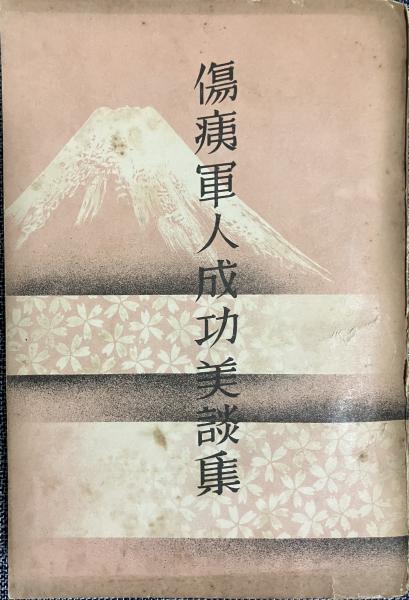 傷痍軍人成功美談集